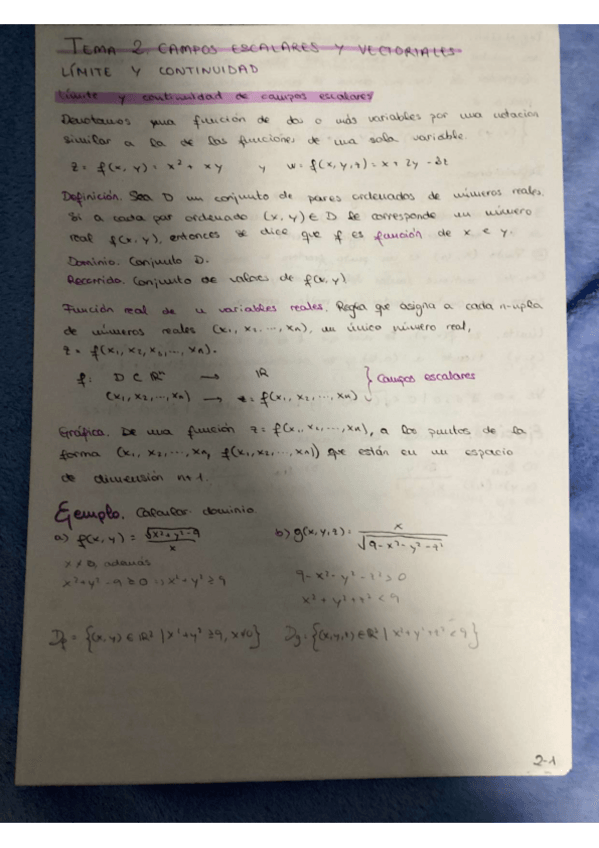 TEMA 2. CAMPOS ESCALARES Y VECTORIALES
LÍMITE Y CONTINUIDAD
Límite y continuidad de campos escalares
Denotamos una función de dos o más variables por una notación
similar a la de las funciones de una sola variable.
z = f(x, y) = x² + xy y w = f(x, y, z) = x + 2y - 3z
Definición. Sea D un conjunto de pares ordenados de números reales.
Si a cada par ordenado (x, y) ∈ D le corresponde un número
real f(x, y), entonces se dice que f es función de x e y.
Dominio. Conjunto D.
Recorrido. Conjunto de valores de f(x, y)
Función real de n variables reales. Regla que asigna a cada n-upla
de números reales (x₁, x₂, ..., xₙ), un único número real,
z = f(x₁, x₂, x₃, ..., xₙ).
f: D ⊂ ℝⁿ → ℝ
(x₁, x₂, ..., xₙ) → z = f(x₁, x₂, ..., xₙ) } Campos escalares
Gráfica. De una función z = f(x₁, x₂, ..., xₙ), a los puntos de la
forma (x₁, x₂, ..., xₙ, f(x₁, x₂, ..., xₙ)) que están en un espacio
de dimensión n+1.
Ejemplo. Calcular dominio.
a) f(x, y) = √(x² + y² - 9) / x b) g(x, y, z) = x / √(9 - x² - y² - z²)
x ≠ 0, además
x² + y² - 9 ≥ 0 ⇒ x² + y² ≥ 9 9 - x² - y² - z² > 0
x² + y² + z² < 9
Df = {(x, y) ∈ ℝ² | x² + y² ≥ 9, x ≠ 0} Dg = {(x, y, z) ∈ ℝ³ | x² + y² + z² < 9}
2-1